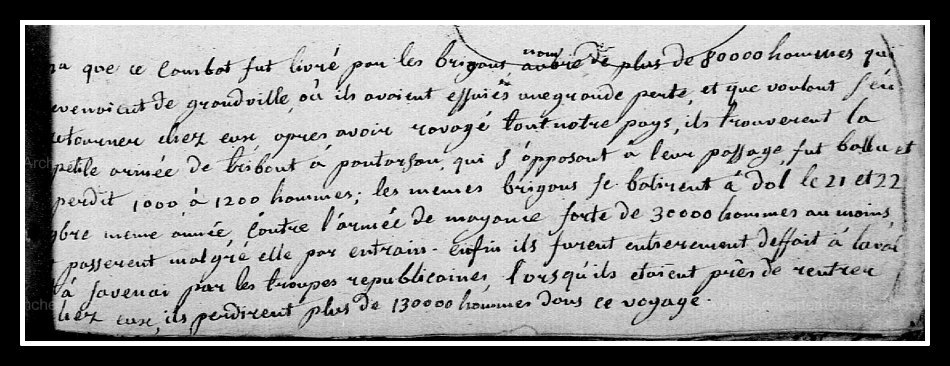 que ce Combat fut livré par les brigans nombré de plus de 80000 hommes qui
evenoient de grandville, où ils avoient essuiés une grande perte, et que voulant s'en
etourner chez eux apres avoir ravagé tout notre pays, ils trouverent la
petite armée de tribout à pontorson, qui s'opposant à leur passage fut battu et
perdit 1000 à 1200 hommes; les memes brigans se batirent à dol le 21 et 22
bre meme année, Contre l'armée de mayance forte de 30000 hommes au moins
passerent malgré elle par entrain. enfin ils furent entierement deffait à
à savenai par les troupes republicaines, lorsqu'ils etoient près de rentrer
chez eux, ils perdirent plus de 130000 hommes dans ce voyage.